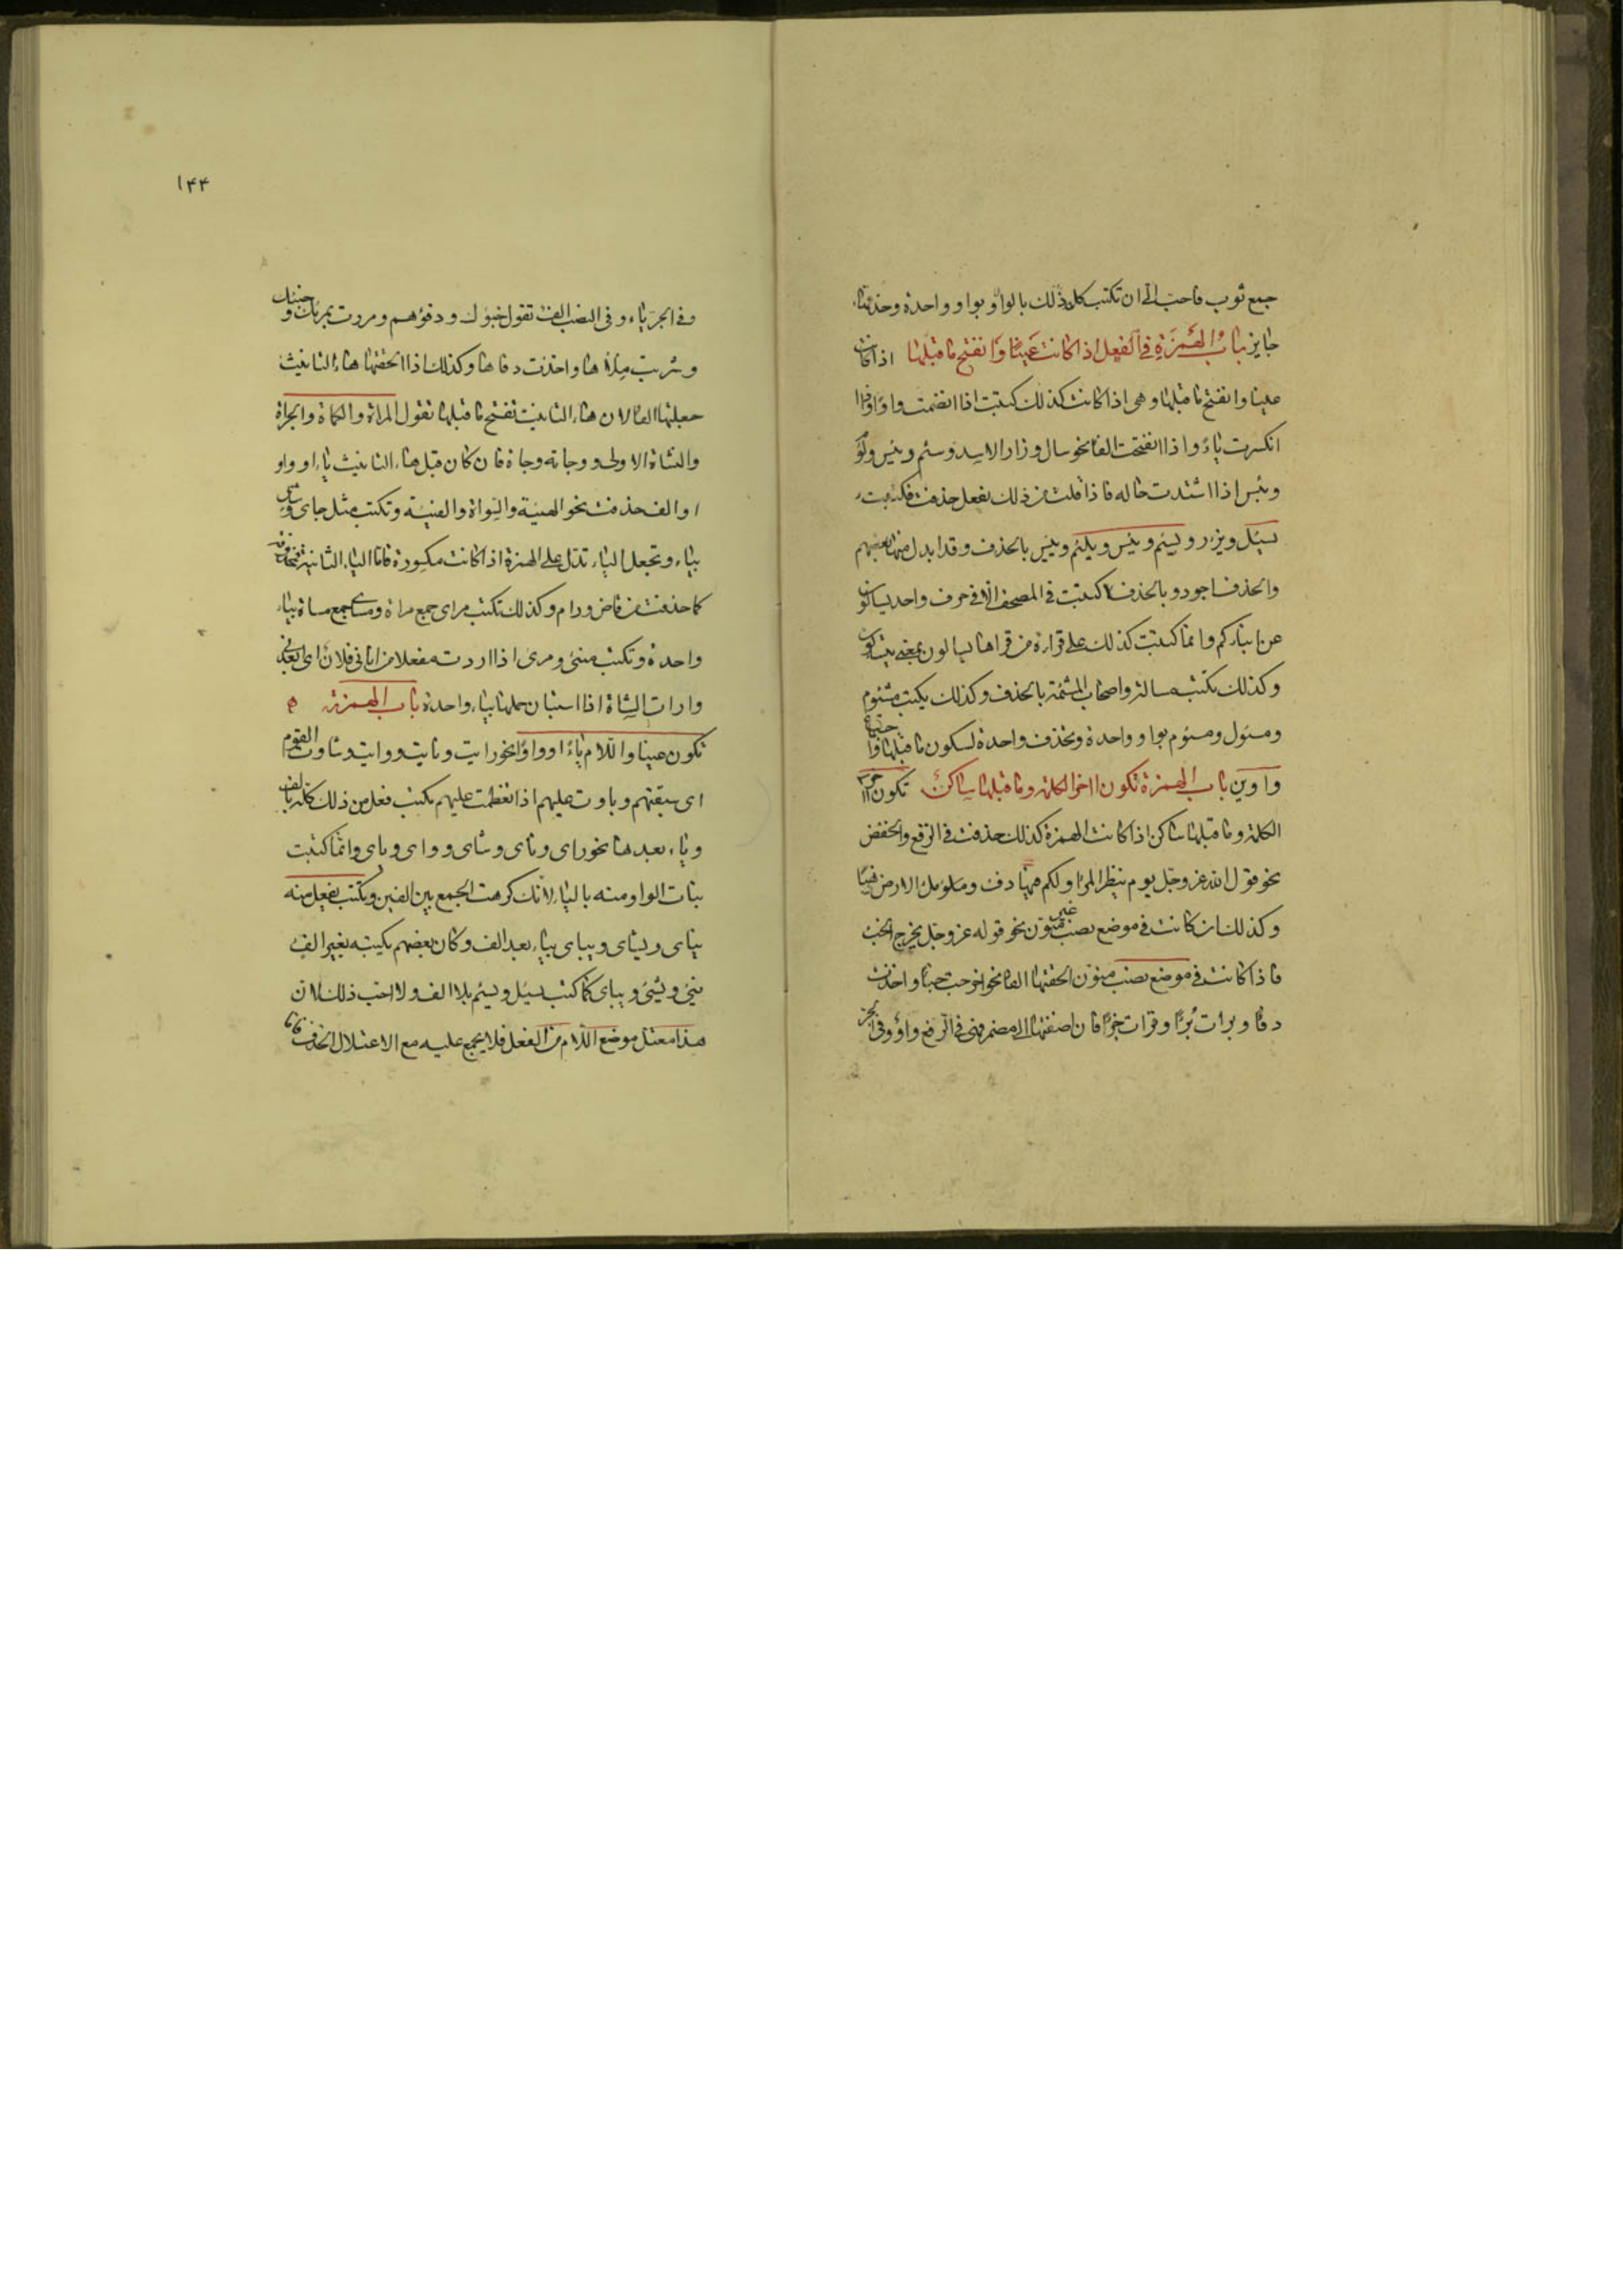 جمع ثوب فاحبّ الىّ ان تكتب كل ذلك بالواو بواو واحدة وحذفها
جايز باب الهمزة فى الفعل اذا كانت عينا وانفتح ما قبلها اذا كانت
عينا وانفتح ما قبلها وهى اذا كانت كذلك كتبت اذا انضمت واوا واذا
انكسرت ياء واذا انفتحت الفا نحو سال وزار الاسد وسئم ويئس ولؤم
وبئس اذا اشتدت حاله فاذا قلت من ذلك يفعل حذفت فكتبت
يسئل ويزر ويسئم ويئس ويلئم ويئس بالحذف وقد ابدل منها بعضهم
والحذف اجود وبالحذف كتبت فى المصحف الا فى حرف واحد يسالون
عن انبائكم وانما كتبت كذلك على قراءة من قراها يسالون بمعنى يتسالون
وكذلك تكتب مسالة واصحاب المشئمة بالحذف وكذلك يكتب مشئوم
ومسئول ومسئوم بواو واحدة وتحذف واحدة لسكون ما قبلها واجتماع
واوين باب الهمزة تكون اخر الكلمة وما قبلها ساكن تكون اخر
الكلمة وما قبلها ساكن اذا كانت الهمزة كذلك حذفت فى الرفع والخفض
نحو قول الله عز وجل يوم ينظر المرء ولكم فيها دفء وملؤ مل الارض ذهبا
وكذلك ان كانت فى موضع نصب غير منون نحو قوله عز وجل يخرج الخبء
فاذا كانت فى موضع نصب منون الحقتها الفا نحو اخرجت خبأ واخذت
دفأ وبرات بُرءًا وقرات جزءًا فان اضفتها الى مضمر فهى فى الرفع واو وفى الجر
١۴۴
وفى الجرّ ياء وفى النصب الف تقول خبؤك ودفؤهم ومررت بمرئك وخبئك
وشربت ملأها واخذت دفاها وكذلك اذا الحقتها هاء التانيث
جعلتها الفا لان هاء التانيث تفتح ما قبلها تقول المراة والكماة والجراة
والنشاة الاولى ووجاته وجاة فان كان قبل هاء التانيث ياء او واو
او الف حذفت نحو الهيئة والسواة والفيئة وتكتب مثل جاى وشاى
بياء وتجعل الياء تدل على الهمزة اذا كانت مكسورة فاما الياء الثانية فتحذف
كما حذفت من قاض ورام وكذلك تكتب مراى جمع مراة ومساى جمع مساة بياء
واحدة وتكتب منئى ومرئى اذا اردت مفعلا من انانى فلان اى ابعدنى
وارات الشاة اذا استبان حملها بياء واحدة باب الهمزة
تكون عينا واللام ياء او واوا نحو رايت ونايت ووايت وشاوت القوم
اى سبقتهم وباوت عليهم اذا تعظمت عليهم يكتب فعل من ذلك كله بالف
وياء بعدها نحو راى وناى وشاى وواى وباى وانما كتبت
بنات الواو منه بالياء لانك كرهت الجمع بين الفين وتكتب يفعل منه
يناى ويشاى ويباى بياء بعد الف وكان بعضهم يكتبه بغير الف
ينئى ويشئى ويباى كما كتب يسئل ويسئم بلا الف ولا احب ذلك لان
هذا معتل موضع اللام من الفعل فلا يجمع عليه مع الاعتلال الحذف